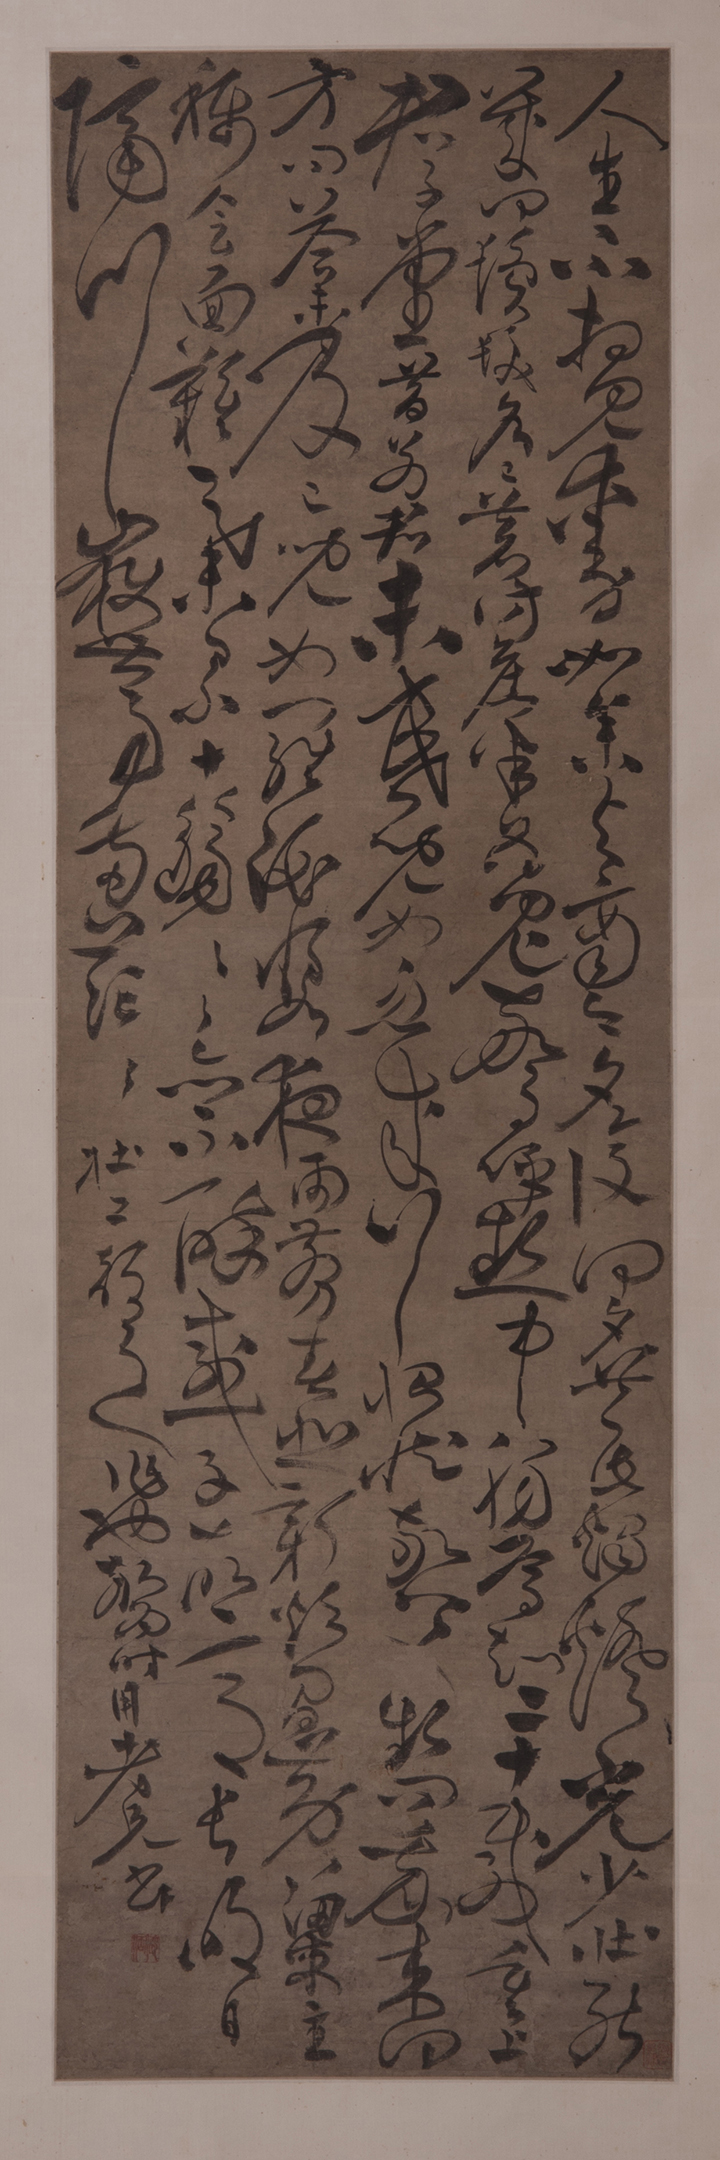 人生不相見動如參與商今夕復何夕共此燭燈光少壯能
幾何鬢髮各已蒼訪舊半為鬼驚呼熱中腸焉知二十載重上
君子堂昔別君未婚兒女忽成行怡然敬父執問我來何
方問答未及已兒女羅酒漿夜雨翦春韭新炊間黃粱主
稱會面難一舉累十觴十觴亦不醉感子故意長明日
隔山嶽世事兩茫茫杜工部 時用老兄書